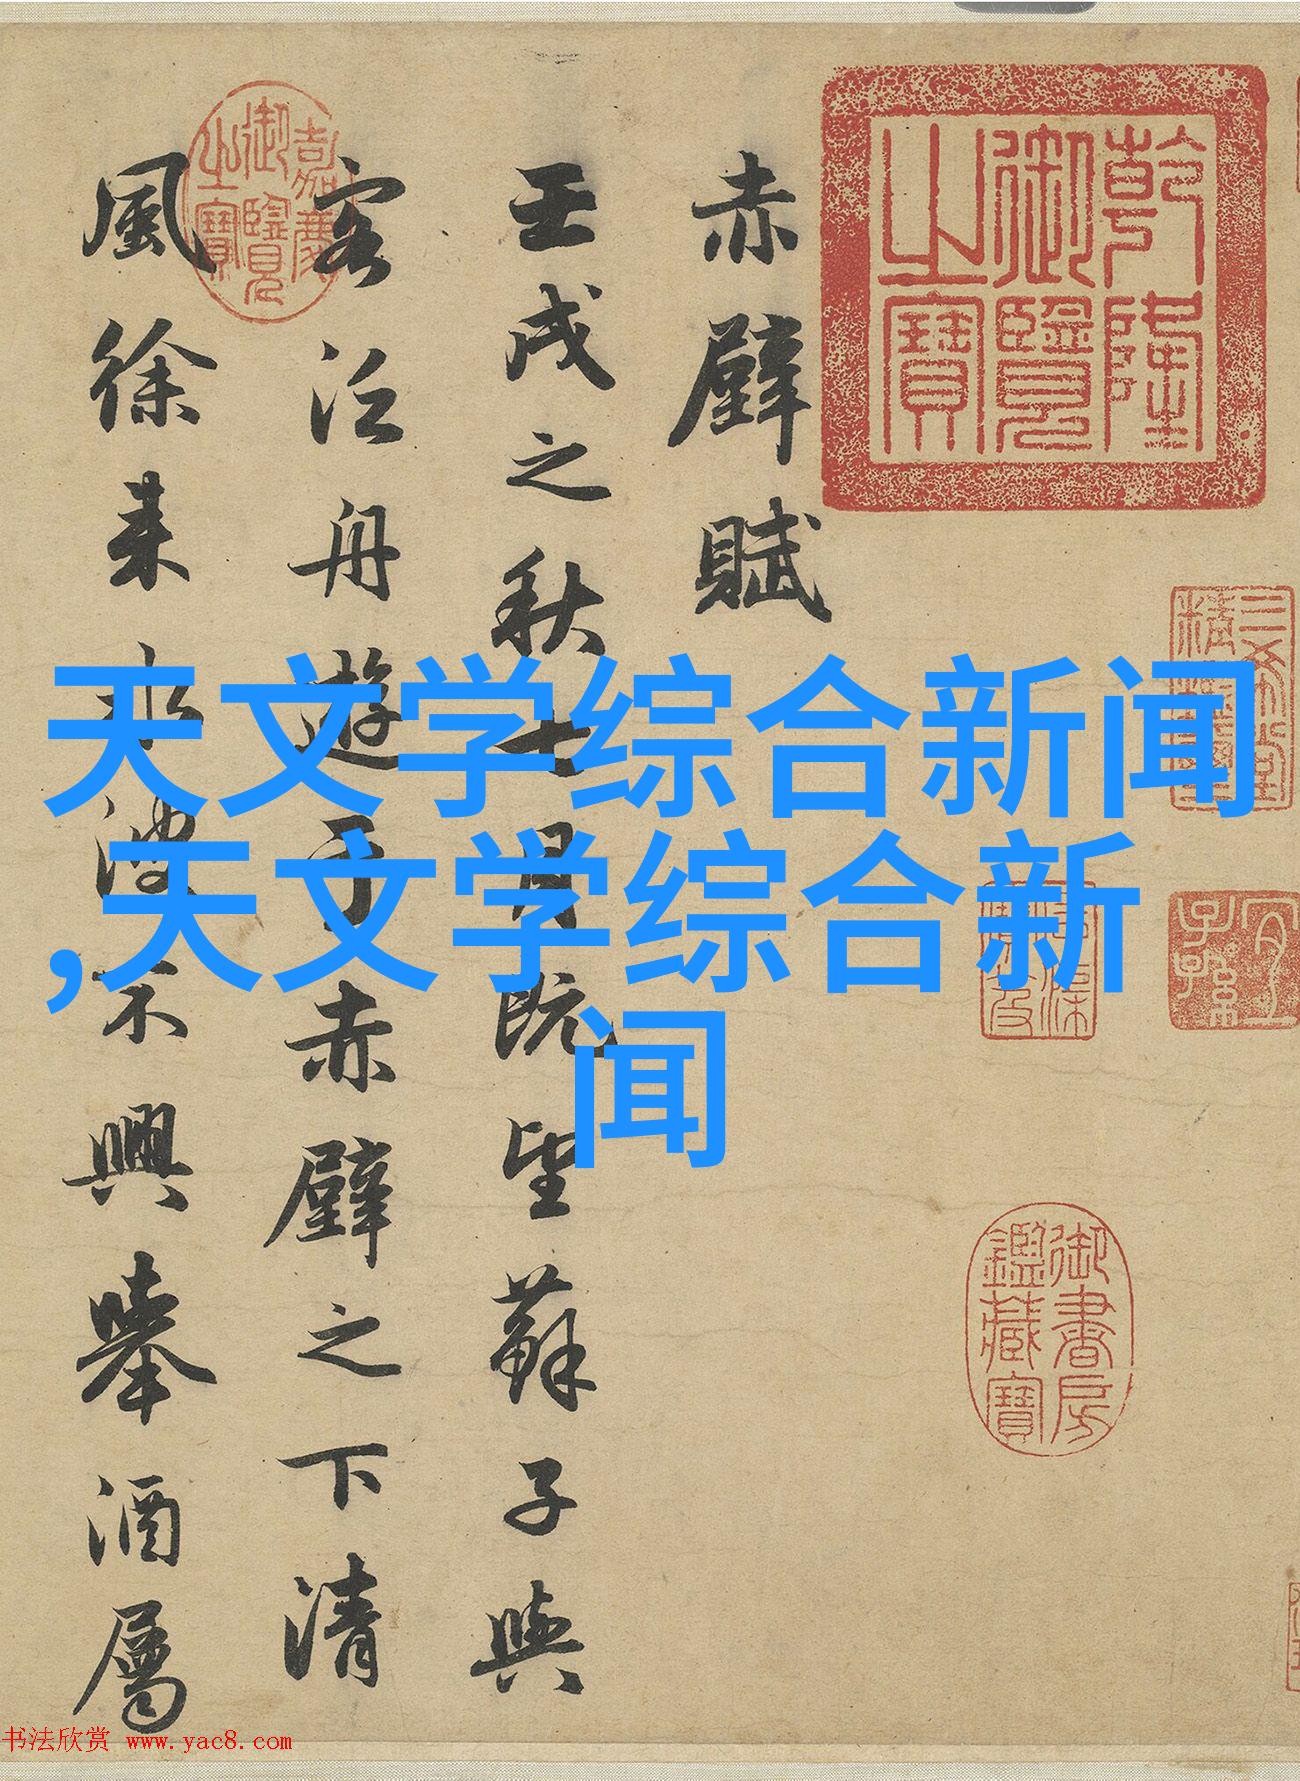 乾隆
御覽
之寶
三希堂
精鑑璽
宜
子孫
御書房
鑑藏寶
赤壁賦
壬戌之秋七月既望蘇子與
客泛舟遊于赤壁之下清
風徐来水波不興舉酒属
嘉慶
御覽
之寶
天文学综合新闻
,天文学综合新
闻
书法欣赏 www.yac8.com